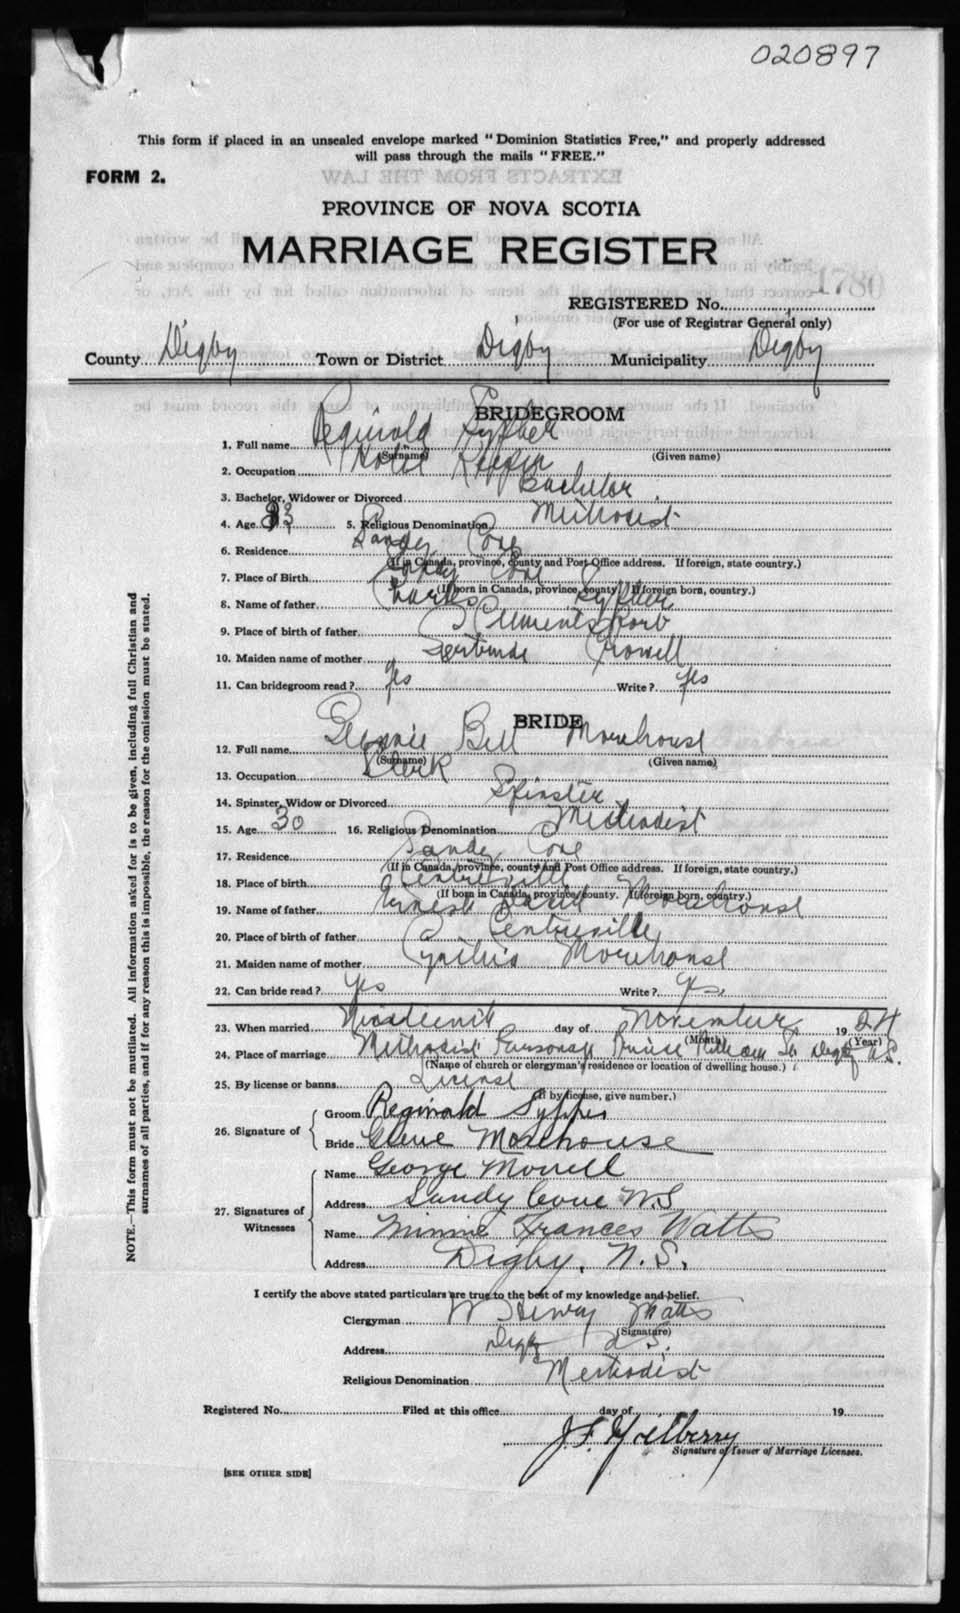 020897
This form if placed in an unsealed envelope marked "Dominion Statistics Free," and properly addressed
will pass through the mails "FREE."
FORM 2.
PROVINCE OF NOVA SCOTIA
MARRIAGE REGISTER
1780
REGISTERED No.
(For use of Registrar General only)
County Digby Town or District Digby Municipality Digby
BRIDEGROOM
1. Full name Reginold Sypher
(Surname) (Given name)
2. Occupation Hotel Keeper
3. Bachelor, Widower or Divorced Bachelor
4. Age 33 5. Religious Denomination Methodist
6. Residence Sandy Cove
(If in Canada, province, county and Post Office address. If foreign, state country.)
7. Place of Birth Sandy Cove
(If born in Canada, province, county. If foreign born, country.)
8. Name of father Charles Sypher
9. Place of birth of father Clementsport
10. Maiden name of mother Gertrude Crowell
11. Can bridegroom read? Yes Write? Yes
BRIDE
12. Full name Bell Morehouse
(Surname) (Given name)
13. Occupation Clerk
14. Spinster, Widow or Divorced Spinster
15. Age 30 16. Religious Denomination Methodist
17. Residence Sandy Cove
(If in Canada, province, county and Post Office address. If foreign, state country.)
18. Place of birth Centreville
(If born in Canada, province, county. If foreign born, country.)
19. Name of father Morehouse
20. Place of birth of father Centreville
21. Maiden name of mother Cynthia Morehouse
22. Can bride read? Yes Write? Yes
23. When married Nineteenth day of November 1924
(Month) (Year)
24. Place of marriage Methodist Parsonage Prince William St. Digby N.S.
(Name of church or clergyman's residence or location of dwelling house.)
25. By license or banns License
(If by license, give number.)
26. Signature of
Groom Reginald Sypher
Bride Morehouse
27. Signatures of Witnesses
Name George Morrell
Address Sandy Cove N.S
Name Minnie Frances Watts
Address Digby, N.S.
I certify the above stated particulars are true to the best of my knowledge and belief.
Clergyman W Henry Watts
(Signature)
Address Digby N.S.
Religious Denomination Methodist
Registered No. Filed at this office day of 19
J. F. Milberry
Signature of Issuer of Marriage Licenses.
[SEE OTHER SIDE]
NOTE.—This form must not be mutilated. All information asked for is to be given, including full Christian and
surnames of all parties, and if for any reason this is impossible, the reason for the omission must be stated.